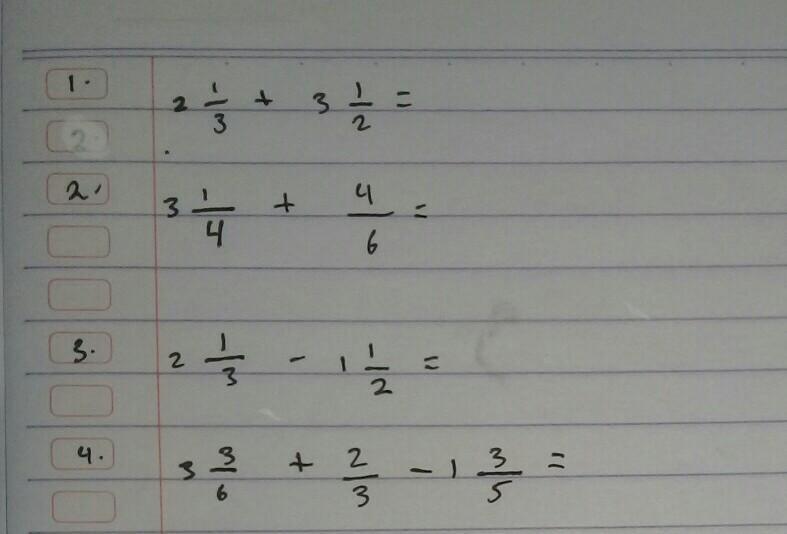 1. 2 1/3 + 3 1/2 =
2.
2. 3 1/4 + 4/6 =
3. 2 1/3 - 1 1/2 =
4. 3 3/6 + 2/3 - 1 3/5 =